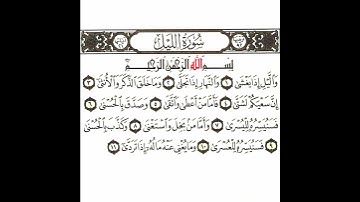 سُورَةُ اللَّيْلِ
بِسْمِ اللَّهِ الرَّحْمَٰنِ الرَّحِيمِ
وَاللَّيْلِ إِذَا يَغْشَىٰ ١ وَالنَّهَارِ إِذَا تَجَلَّىٰ ٢ وَمَا خَلَقَ الذَّكَرَ وَالْأُنثَىٰ ٣
إِنَّ سَعْيَكُمْ لَشَتَّىٰ ٤ فَأَمَّا مَنْ أَعْطَىٰ وَاتَّقَىٰ ٥ وَصَدَّقَ بِالْحُسْنَىٰ ٦
فَسَنُيَسِّرُهُ لِلْيُسْرَىٰ ٧ وَأَمَّا مَن بَخِلَ وَاسْتَغْنَىٰ ٨ وَكَذَّبَ بِالْحُسْنَىٰ
٩ فَسَنُيَسِّرُهُ لِلْعُسْرَىٰ ١٠ وَمَا يُغْنِي عَنْهُ مَالُهُ إِذَا تَرَدَّىٰ ١١